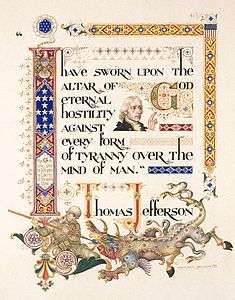 “
I have sworn upon the
altar of God
eternal
hostility
against
every form
of tyranny over the
mind of man.”
Thomas Jefferson